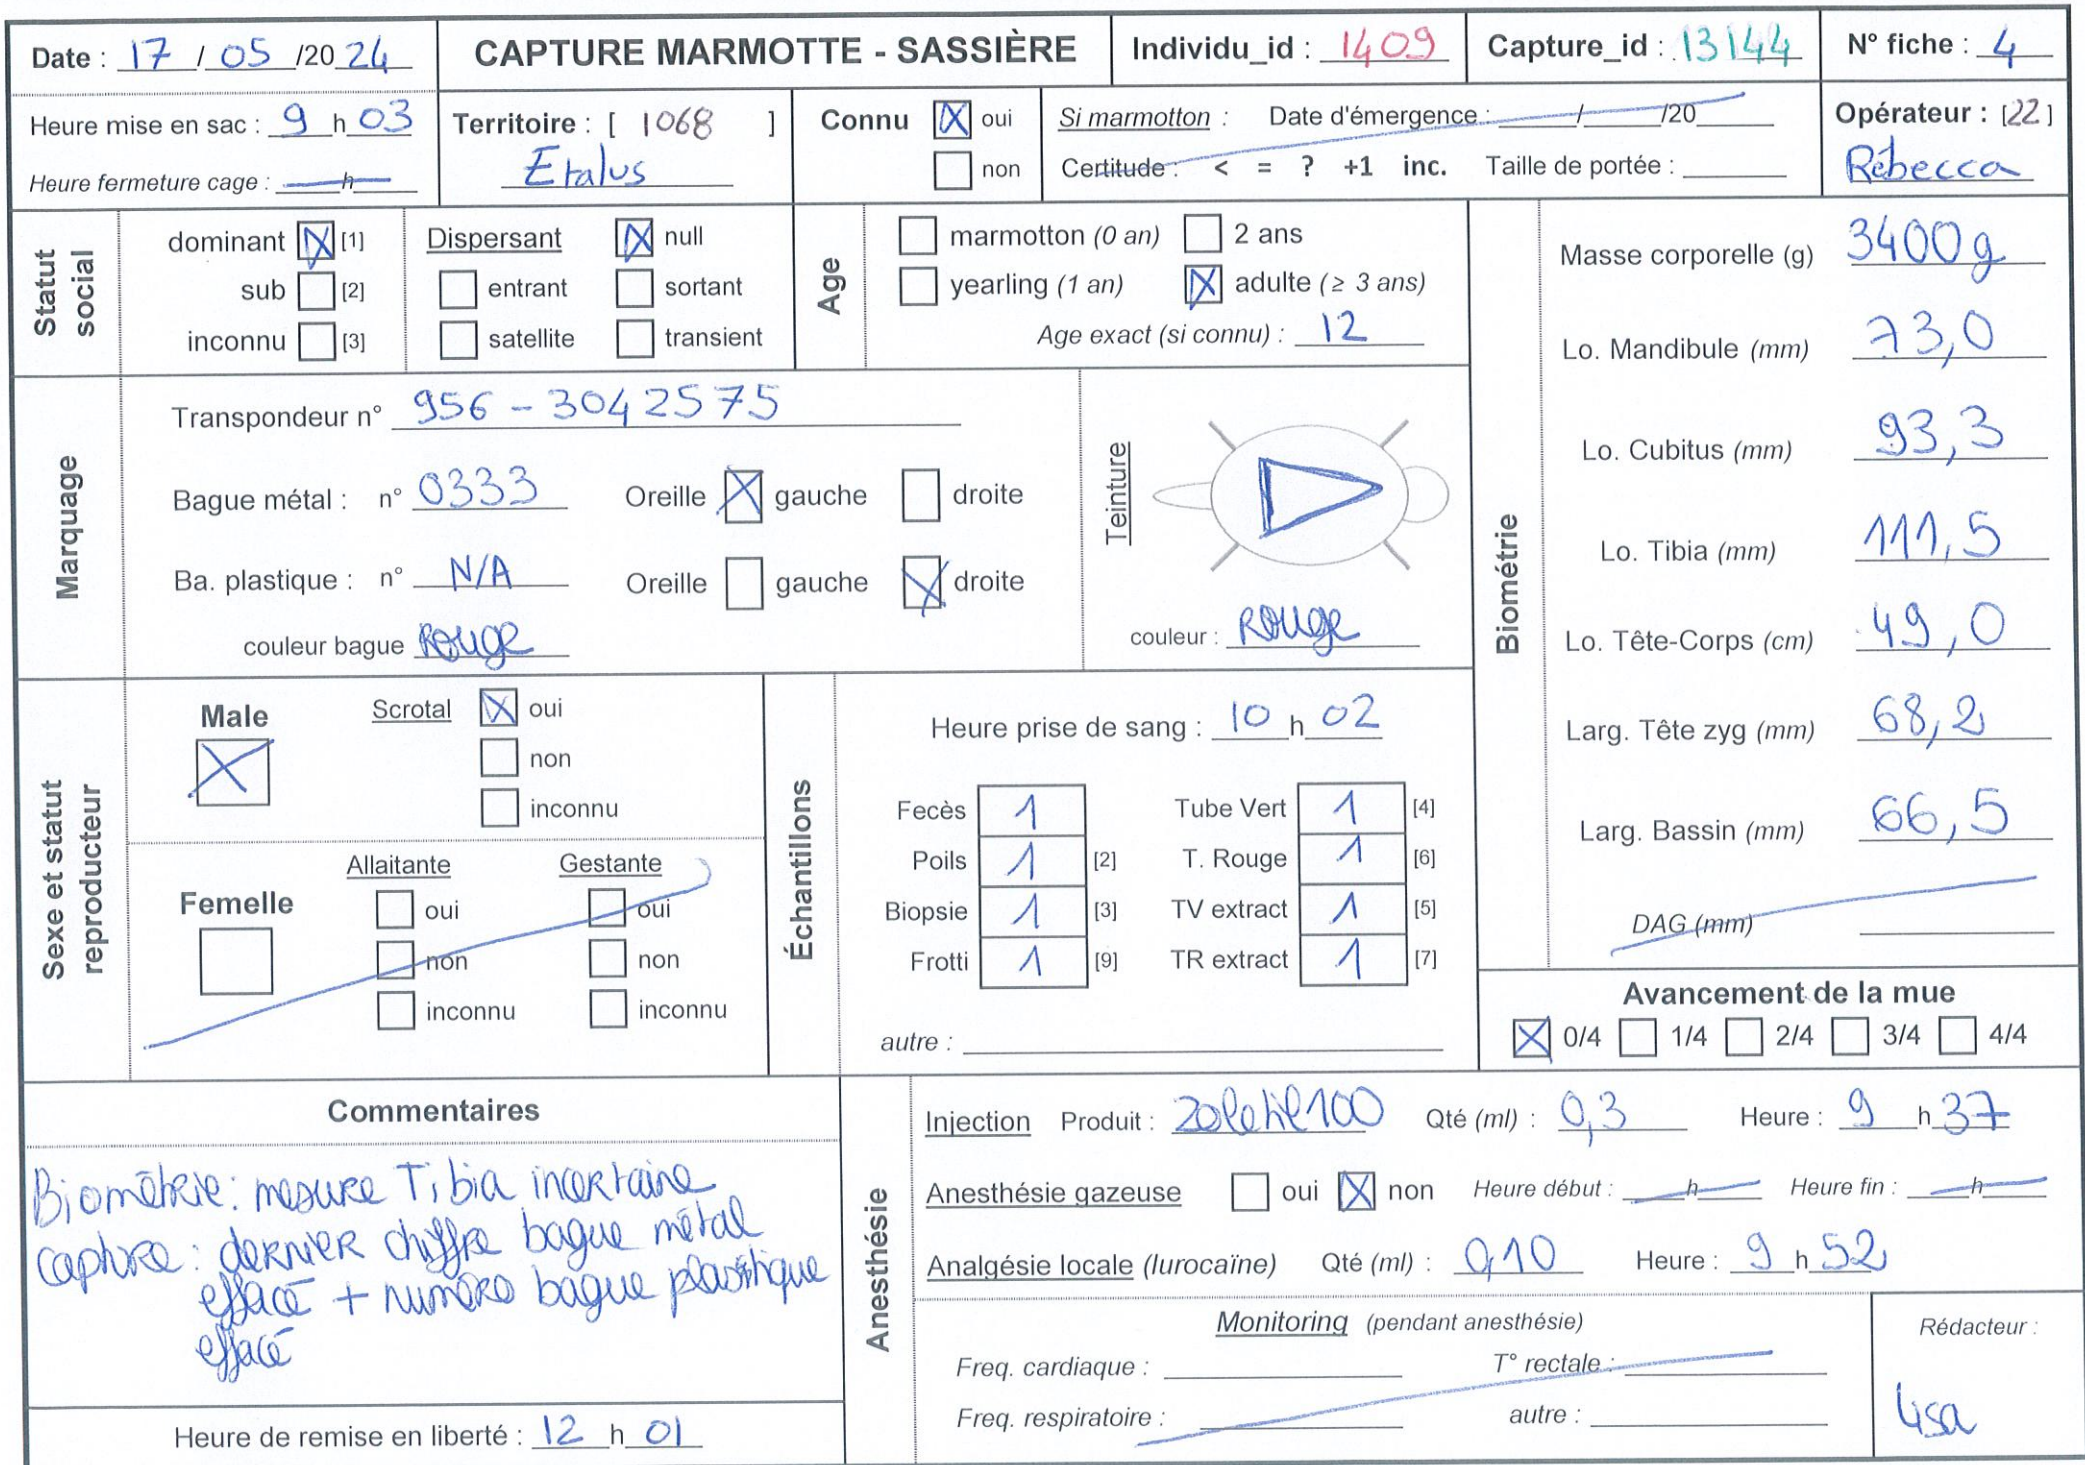 Date : 17 / 05 /20 24
CAPTURE MARMOTTE - SASSIÈRE
Individu_id : 1409
Capture_id : 13144
N° fiche : 4
Heure mise en sac : 9 h 03
Heure fermeture cage : h
Territoire : [ 1068 ]
Etalus
Connu oui
non
Si marmotton : Date d'émergence : / /20
Certitude : < = ? +1 inc. Taille de portée :
Opérateur : [22]
Rébecca
Statut social
dominant [1]
sub [2]
inconnu [3]
Dispersant null
entrant sortant
satellite transient
Age
marmotton (0 an) 2 ans
yearling (1 an) adulte (≥ 3 ans)
Age exact (si connu) : 12
Marquage
Transpondeur n° 956 - 3042575
Bague métal : n° 0333 Oreille gauche droite
Ba. plastique : n° N/A Oreille gauche droite
couleur bague Rouge
Teinture
couleur : Rouge
Biométrie
Masse corporelle (g) 3400g
Lo. Mandibule (mm) 73,0
Lo. Cubitus (mm) 93,3
Lo. Tibia (mm) 111,5
Lo. Tête-Corps (cm) 49,0
Larg. Tête zyg (mm) 68,2
Larg. Bassin (mm) 66,5
DAG (mm)
Sexe et statut reproducteur
Male
Scrotal oui
non
inconnu
Femelle
Allaitante Gestante
oui oui
non non
inconnu inconnu
Échantillons
Heure prise de sang : 10 h 02
Fecès 1 Tube Vert 1 [4]
Poils 1 [2] T. Rouge 1 [6]
Biopsie 1 [3] TV extract 1 [5]
Frotti 1 [9] TR extract 1 [7]
autre :
Avancement de la mue
0/4 1/4 2/4 3/4 4/4
Commentaires
Biométrie : mesure Tibia incertaine
Capture : dernier chiffre bague métal
effacé + numéro bague plastique
effacé
Heure de remise en liberté : 12 h 01
Anesthésie
Injection Produit : Zoletil100 Qté (ml) : 0,3 Heure : 9 h 37
Anesthésie gazeuse oui non Heure début : h Heure fin : h
Analgésie locale (lurocaïne) Qté (ml) : 0,10 Heure : 9 h 52
Monitoring (pendant anesthésie)
Freq. cardiaque : T° rectale :
Freq. respiratoire : autre :
Rédacteur :
Lisa